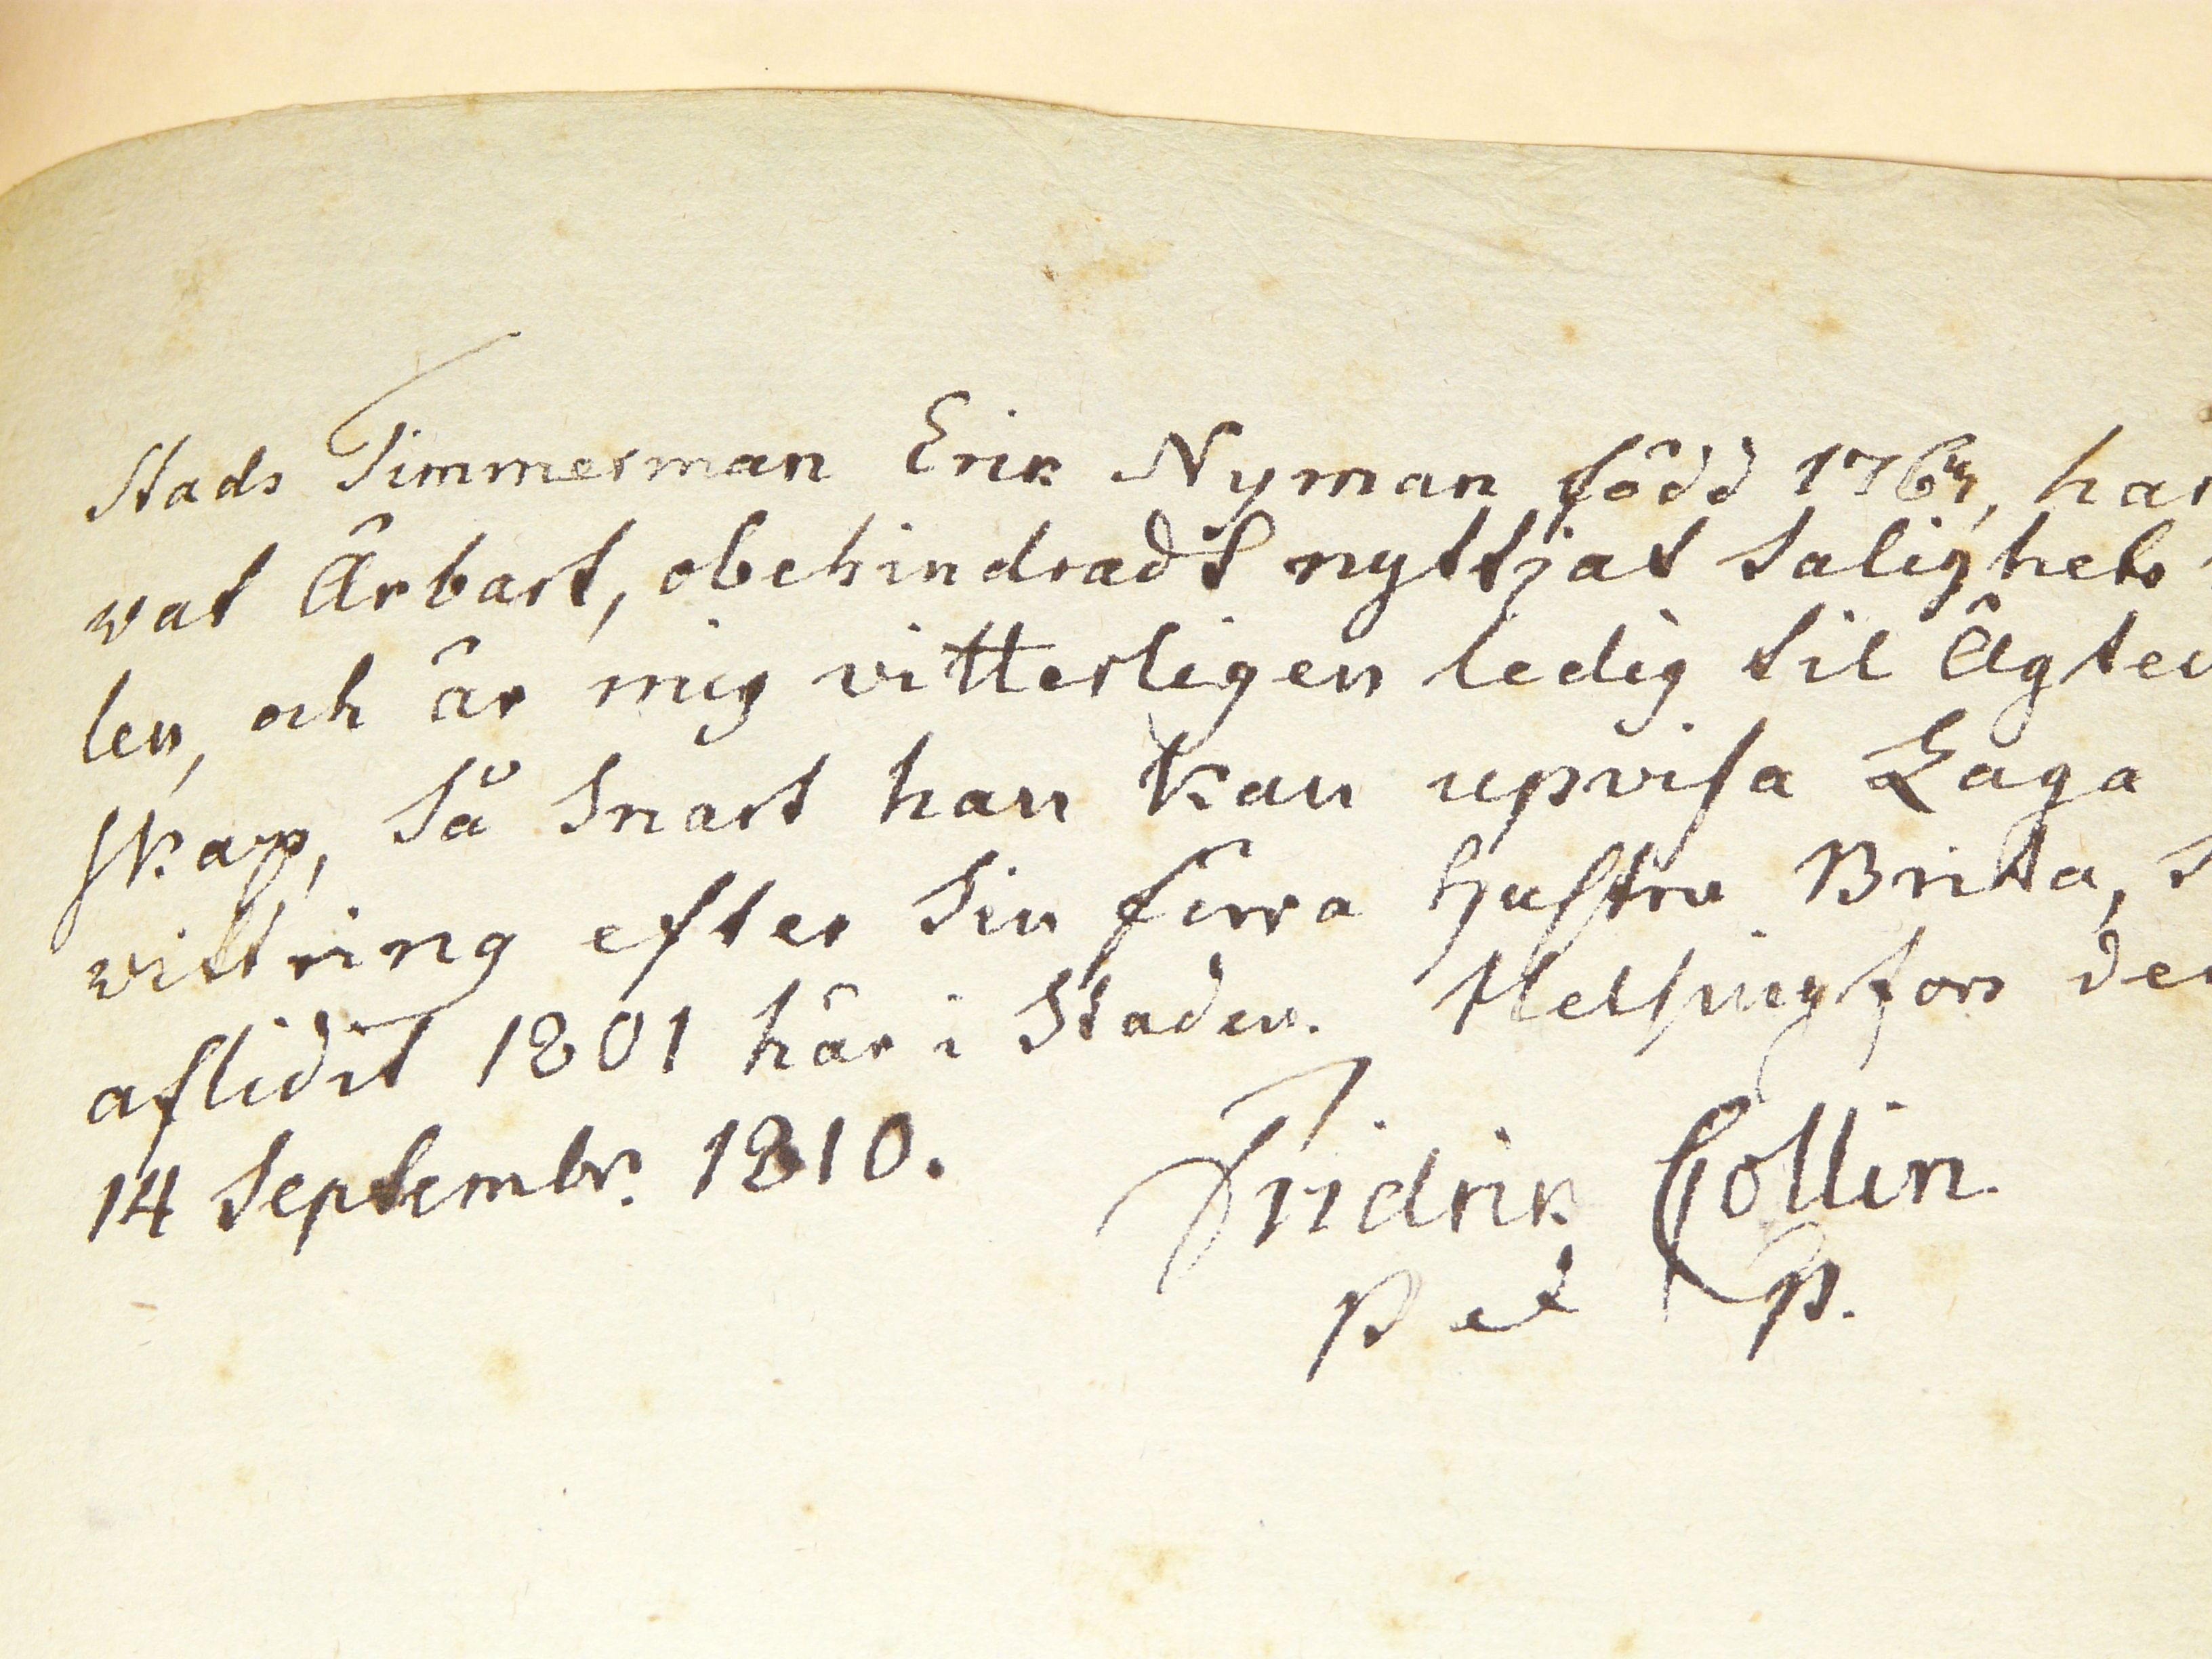 Stads Timmerman Erik Nyman född 1764, har
vat Ärbart, obehindradt nyttjat Salighets
len, och är mig vitterligen ledig til Ägten
skap, Så Snart han kan upvisa Laga
vittring efter Sin förra hustru Britta, S
aflidit 1801 här i Staden. Helsingfors den
14 Septembr. 1810.
Fridrik Collin
P et P.